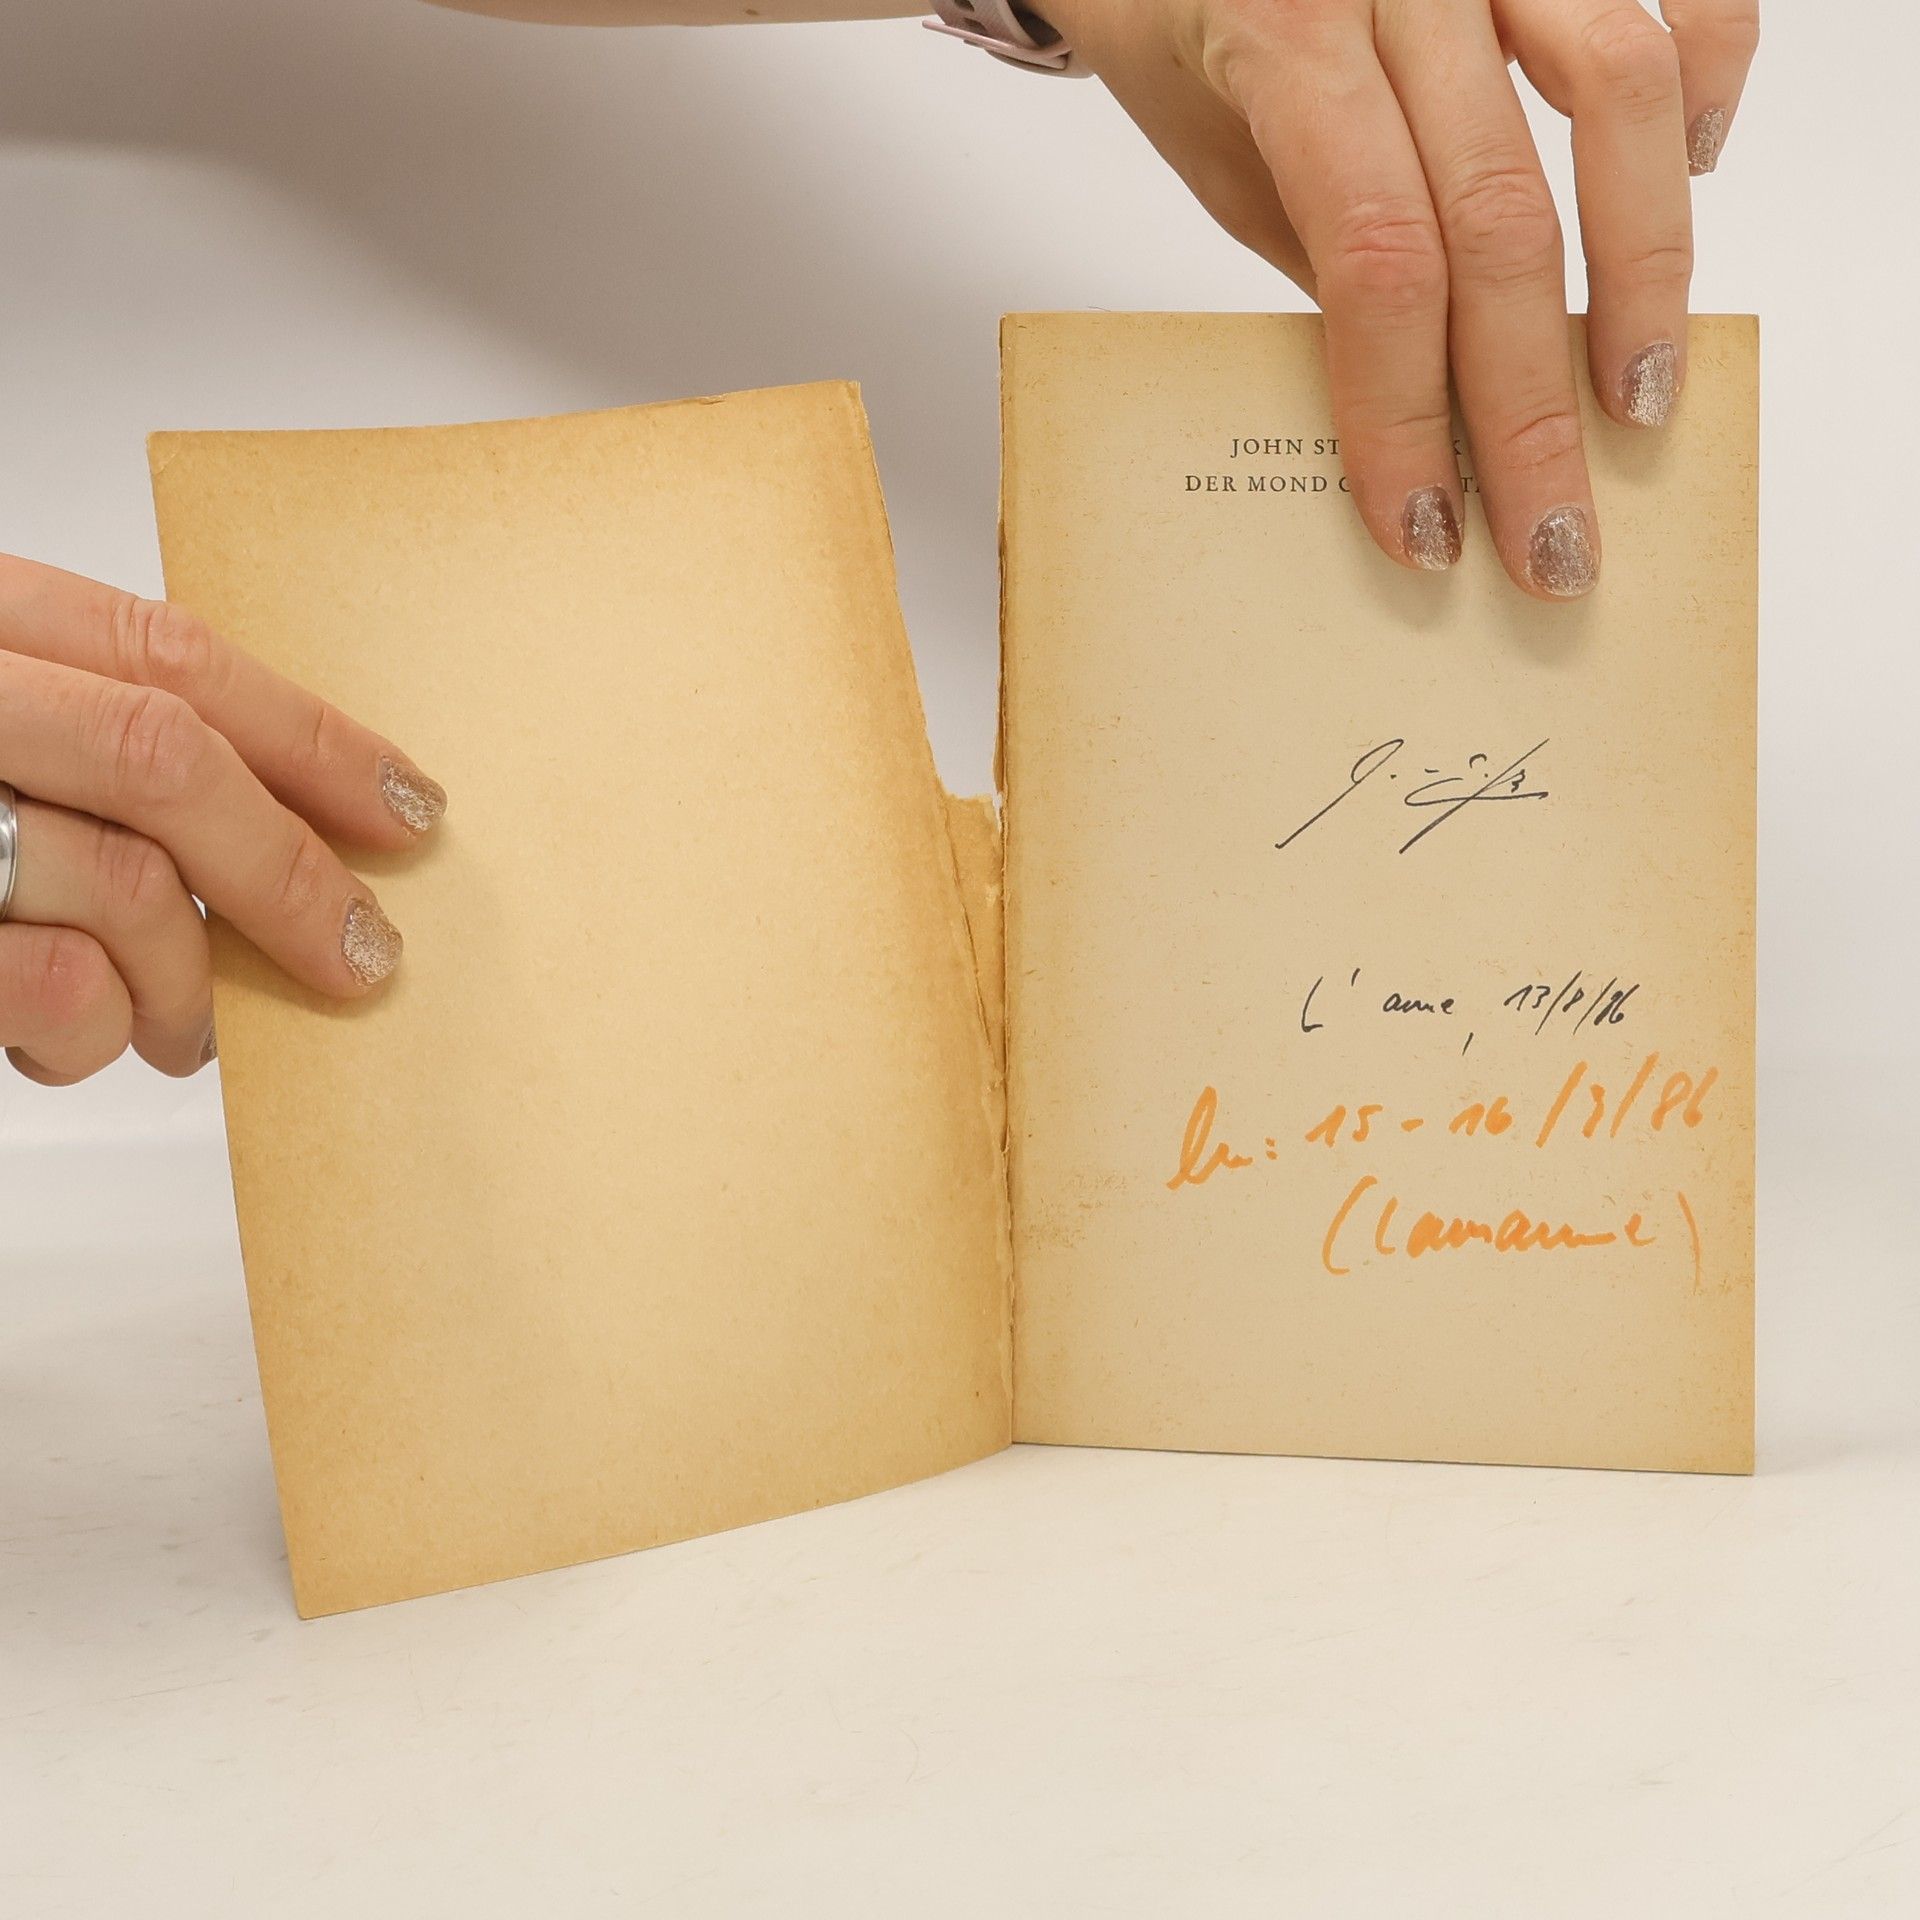 JOHN ST K
DER MOND G T
L'anne, 13/8/86
lu: 15-16/3/86
(Lausanne)